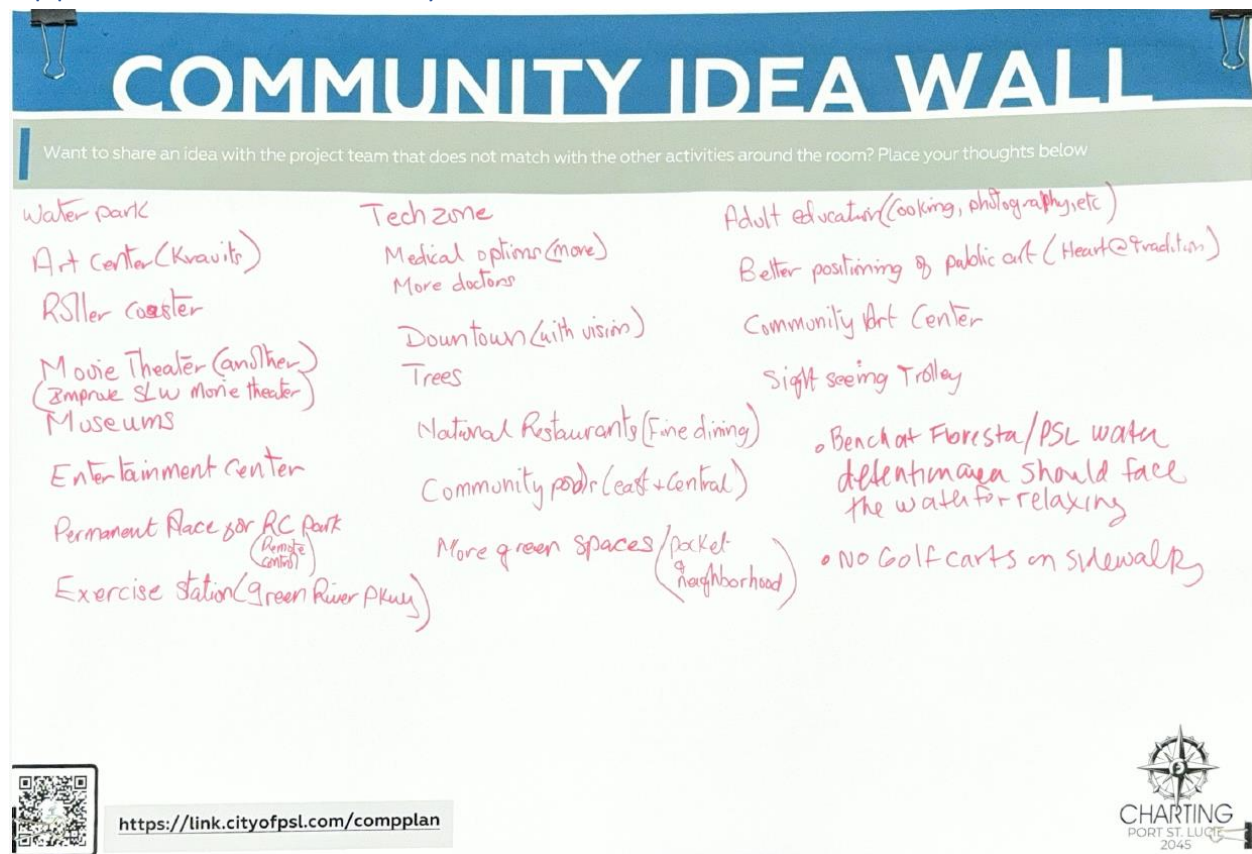 COMMUNITY IDEA WALL
Want to share an idea with the project team that does not match with the other activities around the room? Place your thoughts below
Water park
Art Center (Kravits)
Roller coaster
Movie Theater (another)
(Improve SLW Movie theater)
Museums
Entertainment Center
Permanent Place for RC Park
(Remote
Control)
Exercise Station (green River Pkwy)
Tech zone
Medical options (more)
More doctors
Downtown (with vision)
Trees
National Restaurants (Fine dining)
Community pools (east + Central)
More green spaces / (pocket
neighborhood)
Adult education (Cooking, photography, etc)
Better positioning of public art (Heart @ Tradition)
Community Art Center
Sight seeing Trolley
• Bench at Floresta/PSL water
detention area should face
the water for relaxing
• No Golf carts on sidewalks
https://link.cityofpsl.com/compplan
CHARTING
PORT ST. LUCIE
2045